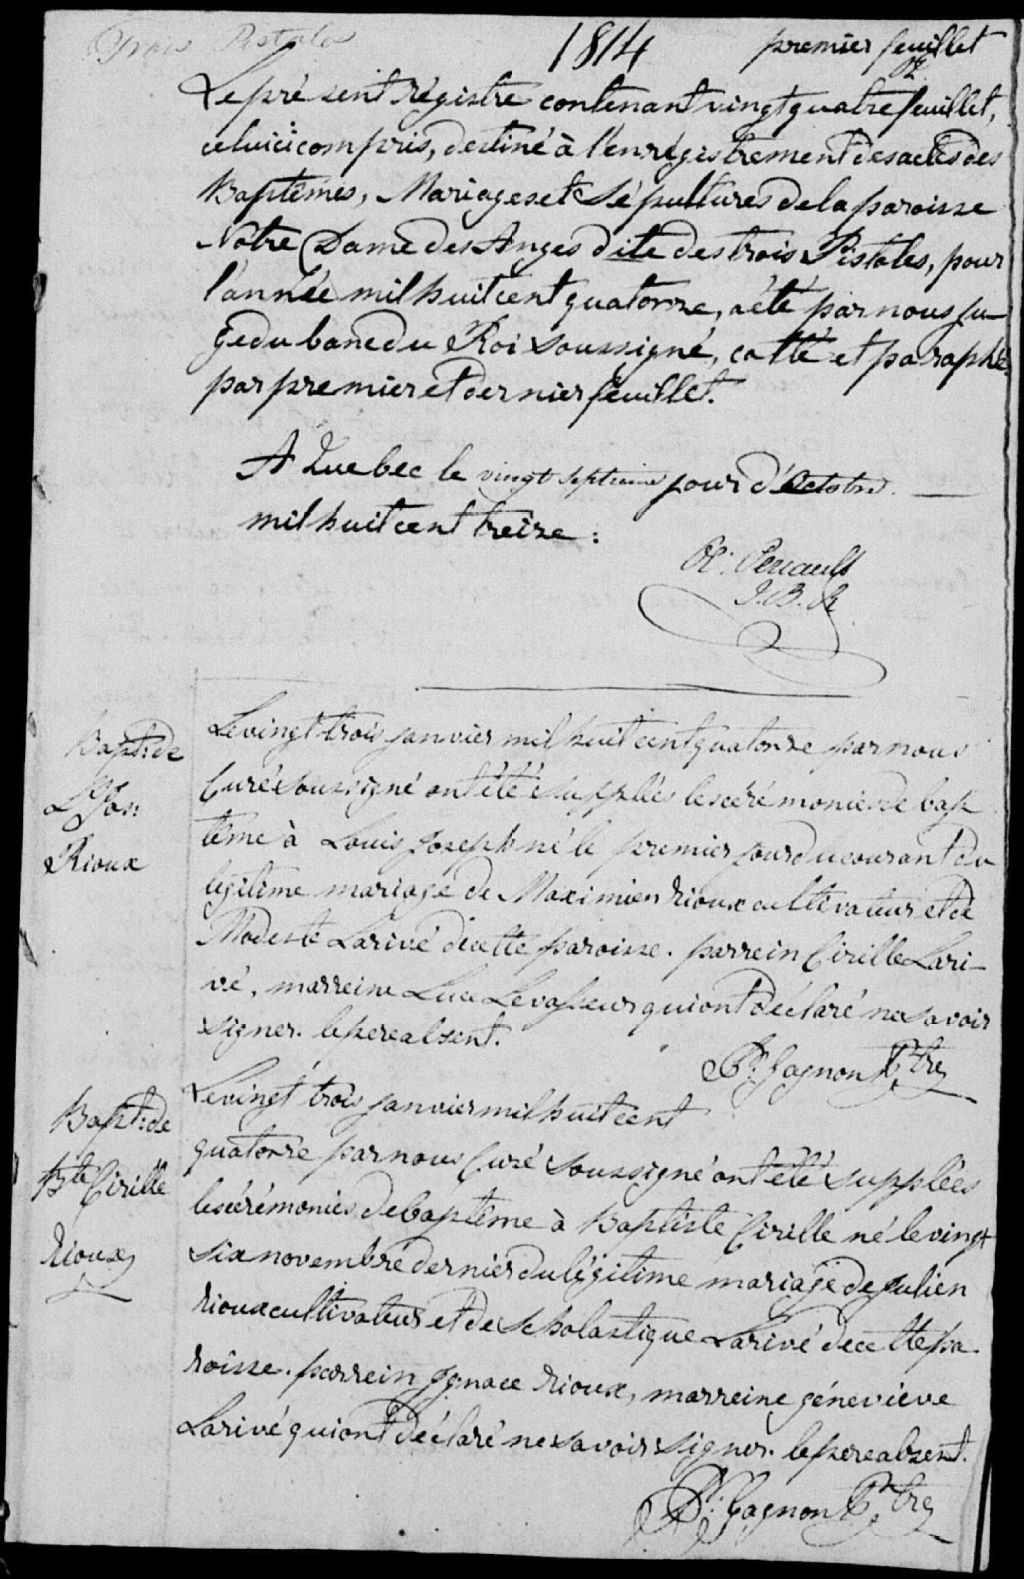 Trois Pistoles
1814
premier feuillet
Le présent régistre contenant vingt quatre feuillet,
celuici compris, destiné à l'enrégistrement des actes des
Baptêmes, Mariages et Sépultures de la paroisse
Notre Dame des Anges dite des trois Pistoles, pour
l'année mil huit cent quatorze, a été par nous ju-
ge du banc du Roi soussigné, cotté et paraphé
par premier et dernier feuillet.
A Quebec le vingt septieme jour d'Octobre
mil huit cent treize :
Ol: Perrault
J. B. R
Bapt: de
L Jos:
Rioux
Le vingt trois janvier mil huit cent quatorze par nous
Curé soussigné ont été supplées les cérémonies de bap
tême à Louis Joseph né le premier jour du courant du
légitime mariage de Maximien rioux cultivateur et de
Modeste Larivé de cette paroisse. parrein Cirille Lari-
vé, marreine Luce Levasseur qui ont déclaré ne savoir
signer. le pere absent.
Pr: Gagnon Ptre
Bapt: de
Bte Cirille
rioux
Le vingt trois janvier mil huit cent
quatorze par nous Curé soussigné ont été supplées
les cérémonies de baptême à Baptiste Cirille né le vingt
six novembre dernier du légitime mariage de julien
rioux cultivateur et de scholastique Larivé de cette pa-
roisse. parrein Ignace rioux, marreine géneviève
Larivé qui ont déclaré ne savoir signer. le pere absent.
Pr: Gagnon Ptre